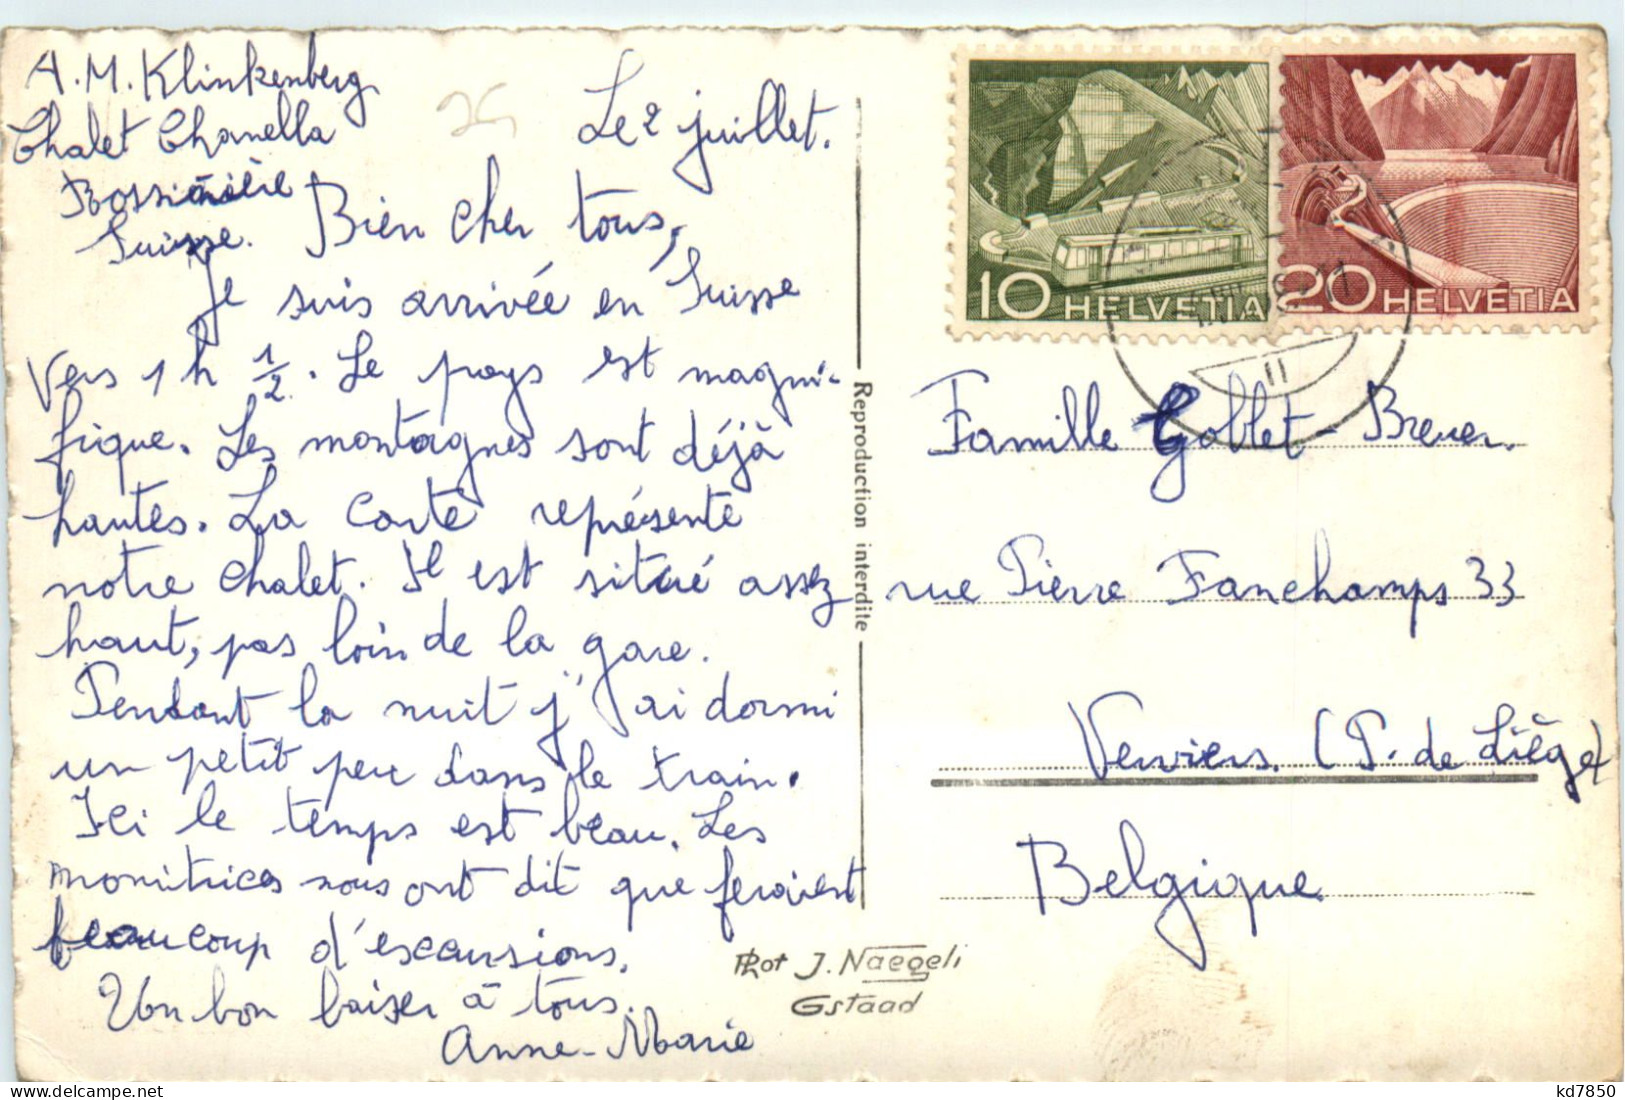 A.M. Klinkenberg
Chalet Chanella
Rossinière
Suisse.
Le 2 juillet.
Bien cher tous,
Je suis arrivée en Suisse
Vers 1 h 1/2. Le pays est magni-
fique. Les montagnes sont déjà
hautes. La carte représente
notre chalet. Il est situé assez
haut, pas loin de la gare.
Pendant la nuit j'ai dormi
un petit peu dans le train.
Ici le temps est beau. Les
monitrices nous ont dit que feraient
beaucoup d'excursions.
Un bon baiser à tous.
Anne-Marie
Reproduction interdite
Phot J. Naegeli
Gstaad
10 HELVETIA
20 HELVETIA
II
Famille Goblet-Breuer.
rue Pierre Fanchamps 33
Verviers. (P. de Liège)
Belgique
kd7850